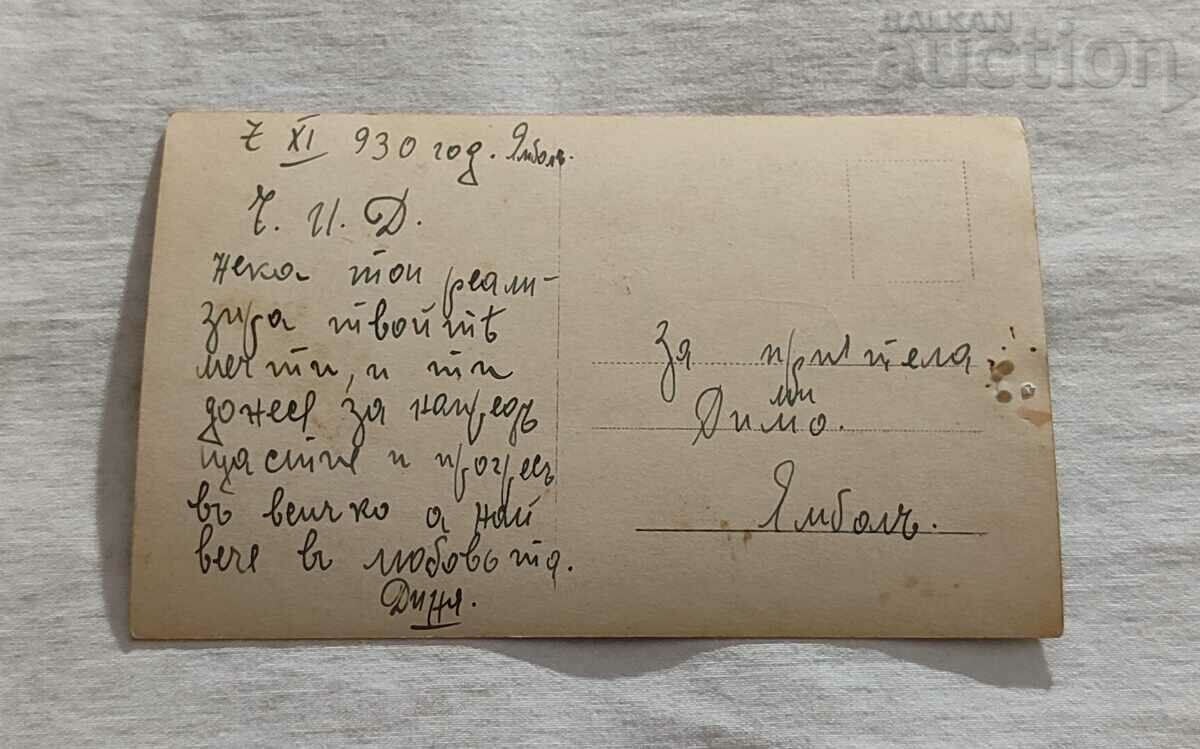 BALKAN
auction
7 XI 930 год. Ямболъ.
Ч. И. Д.
Нека той реали-
зира твоитѣ
мечти, и ти
донесе за напредъ
щастие и прогресъ
въ всичко а най
вече въ любовьта.
Диня.
За приятела
ми
Димо.
Ямболъ.